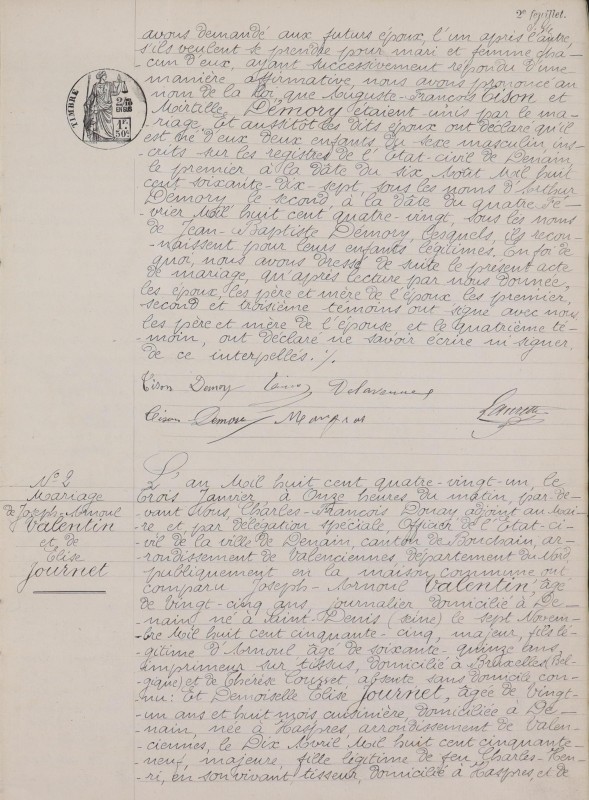 2e feuillet.
avons demandé aux futurs époux, l'un après l'autre,
s'ils veulent se prendre pour mari et femme, cha-
cun d'eux, ayant successivement répondu d'une
manière, affirmative, nous avons prononcé au
nom de la Loi, que Auguste-François Tison et
Mirtille Démory étaient unis par le ma-
riage. Et aussitôt les dits époux ont déclaré qu'il
est né d'eux deux enfants du sexe masculin, ins-
crits sur les registres de l'Etat-civil de Denain,
le premier à la date du six Août Mil huit
cent soixante-dix-sept, sous les noms d'Arthur
Démory, le second, à la date du quatre Fé-
vrier Mil huit cent quatre-vingt, sous les noms
de Jean-Baptiste Démory, lesquels, ils recon-
naissent pour leurs enfants légitimes. En foi de
quoi, nous avons dressé de suite le présent acte
de mariage, qu'après lecture par nous donnée,
les époux, les père et mère de l'époux, les premier,
second et troisième témoins ont signé avec nous,
les père et mère de l'épouse, et le quatrième té-
moin, ont déclaré ne savoir écrire ni signer,
de ce interpellés ./.
TIMBRE
Tison Demory
Tison
N° 2
Mariage
de Joseph-Arnoul
Valentin
et de
Elise
Journet
L'an Mil huit cent quatre-vingt-un, le
trois Janvier, à Onze heures du matin, par-de-
vant Nous, Charles-François Donay adjoint au Mai-
re et, par délégation spéciale Officier de l'Etat-ci-
vil de la ville de Denain, canton de Bouchain, ar-
rondissement de Valenciennes, département du Nord,
publiquement en la maison commune ont
comparu Joseph-Arnoul Valentin âgé
de vingt-cinq ans, journalier, domicilié à De-
nain, né à Saint-Denis (seine) le sept Novem-
bre Mil huit cent cinquante-cinq, majeur, fils lé-
gitime d'Arnoul âgé de soixante-quinze ans,
imprimeur sur tissus, domicilié à Bruxelles (Bel-
gique) et de Thérèse absente sans domicile con-
nu: Et Demoiselle Elise Journet, âgée de vingt-
un ans et huit mois cuisinière, domiciliée à De-
nain, née à Haspres, arrondissement de Valen-
ciennes, le Dix Avril Mil huit cent cinquante-
neuf, majeure, fille légitime de feu Charles-Hen-
ri, en son vivant tisseur, domicilié à Haspres, et de